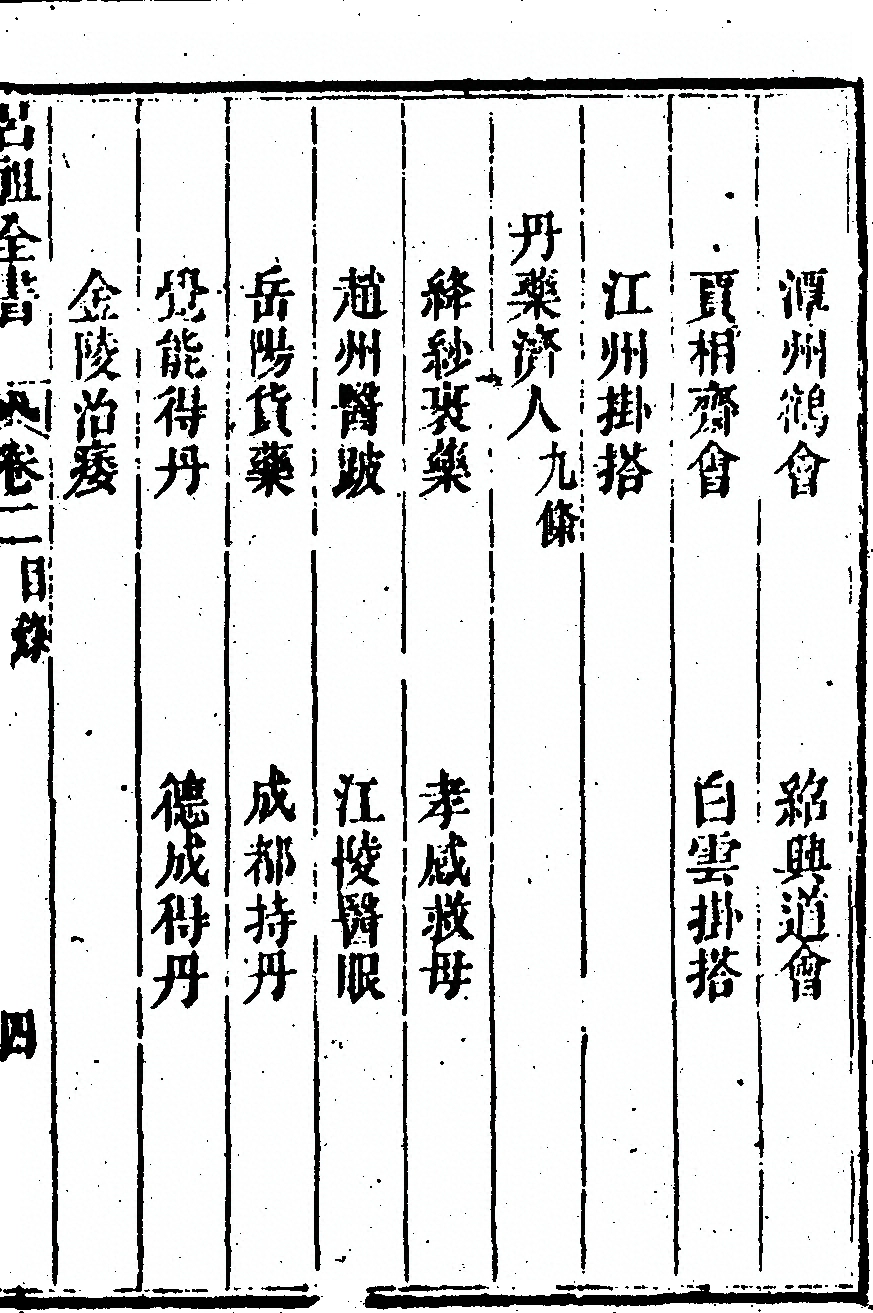 潭州鶴會　紹興道會
賈相齋會　白雲掛搭
江州掛搭
丹藥濟人九條
絳紗裹藥　孝感救母
趙州醫跛　江陵醫眼
岳陽貨藥　成都持丹
覺能得丹　德成得丹
金陵治痿
呂祖全書　卷二目錄　四